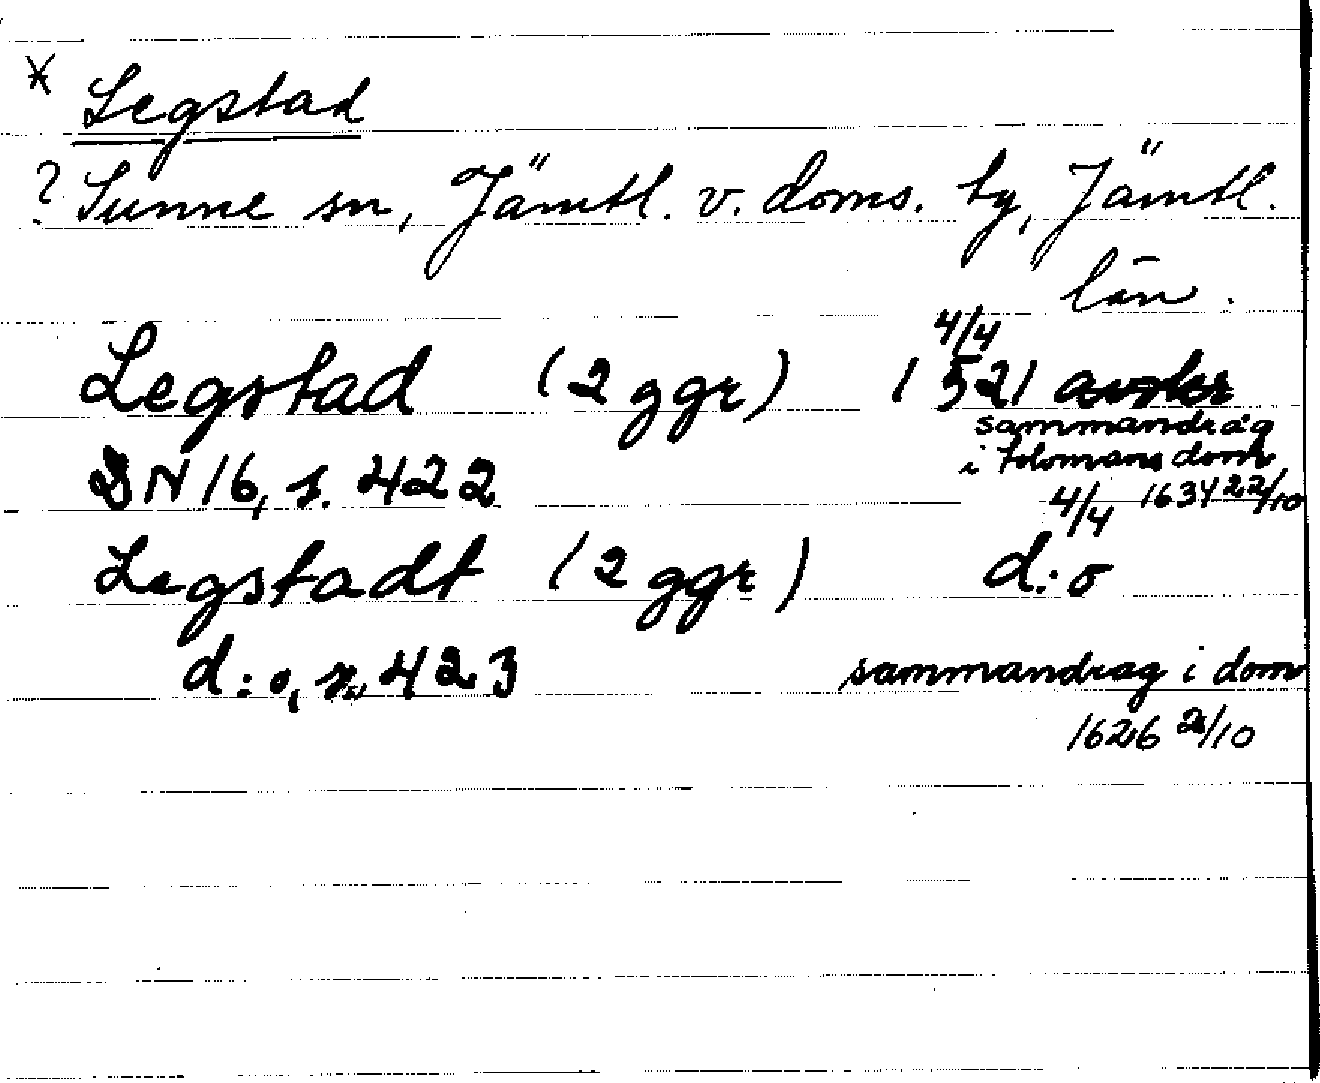 * Legstad
? Sunne sn, Jämtl. v. doms. tg, Jämtl.
län.
4/4
Legstad (2 ggr) 1521
sammandrag
i tolvmansdom
DN 16, s. 422
4/4 1634 22/10
Legstadt (2 ggr) d:o
d:o, s. 423 sammandrag i dom
1626 2/10